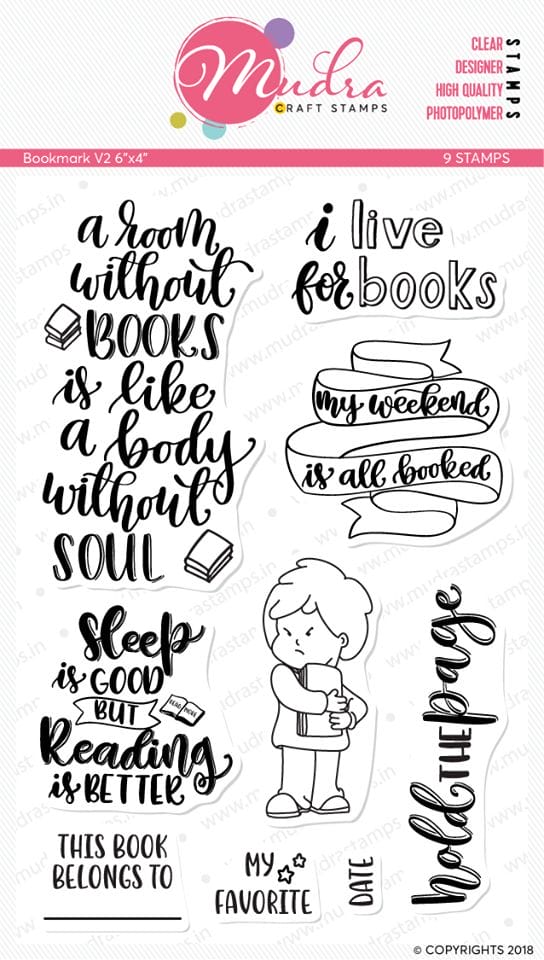 Mudra
CRAFT STAMPS
CLEAR
DESIGNER
HIGH QUALITY
PHOTOPOLYMER
STAMPS
Bookmark V2 6"x4"
9 STAMPS
a room
without
BOOKS
is like
a body
without
SOUL
i live
for books
my weekend
is all booked
Sleep
is GOOD
BUT
READ MORE
Reading
is BETTER
hold THE page
THIS BOOK
BELONGS TO
MY
FAVORITE
DATE
www.mudrastamps.in
© COPYRIGHTS 2018